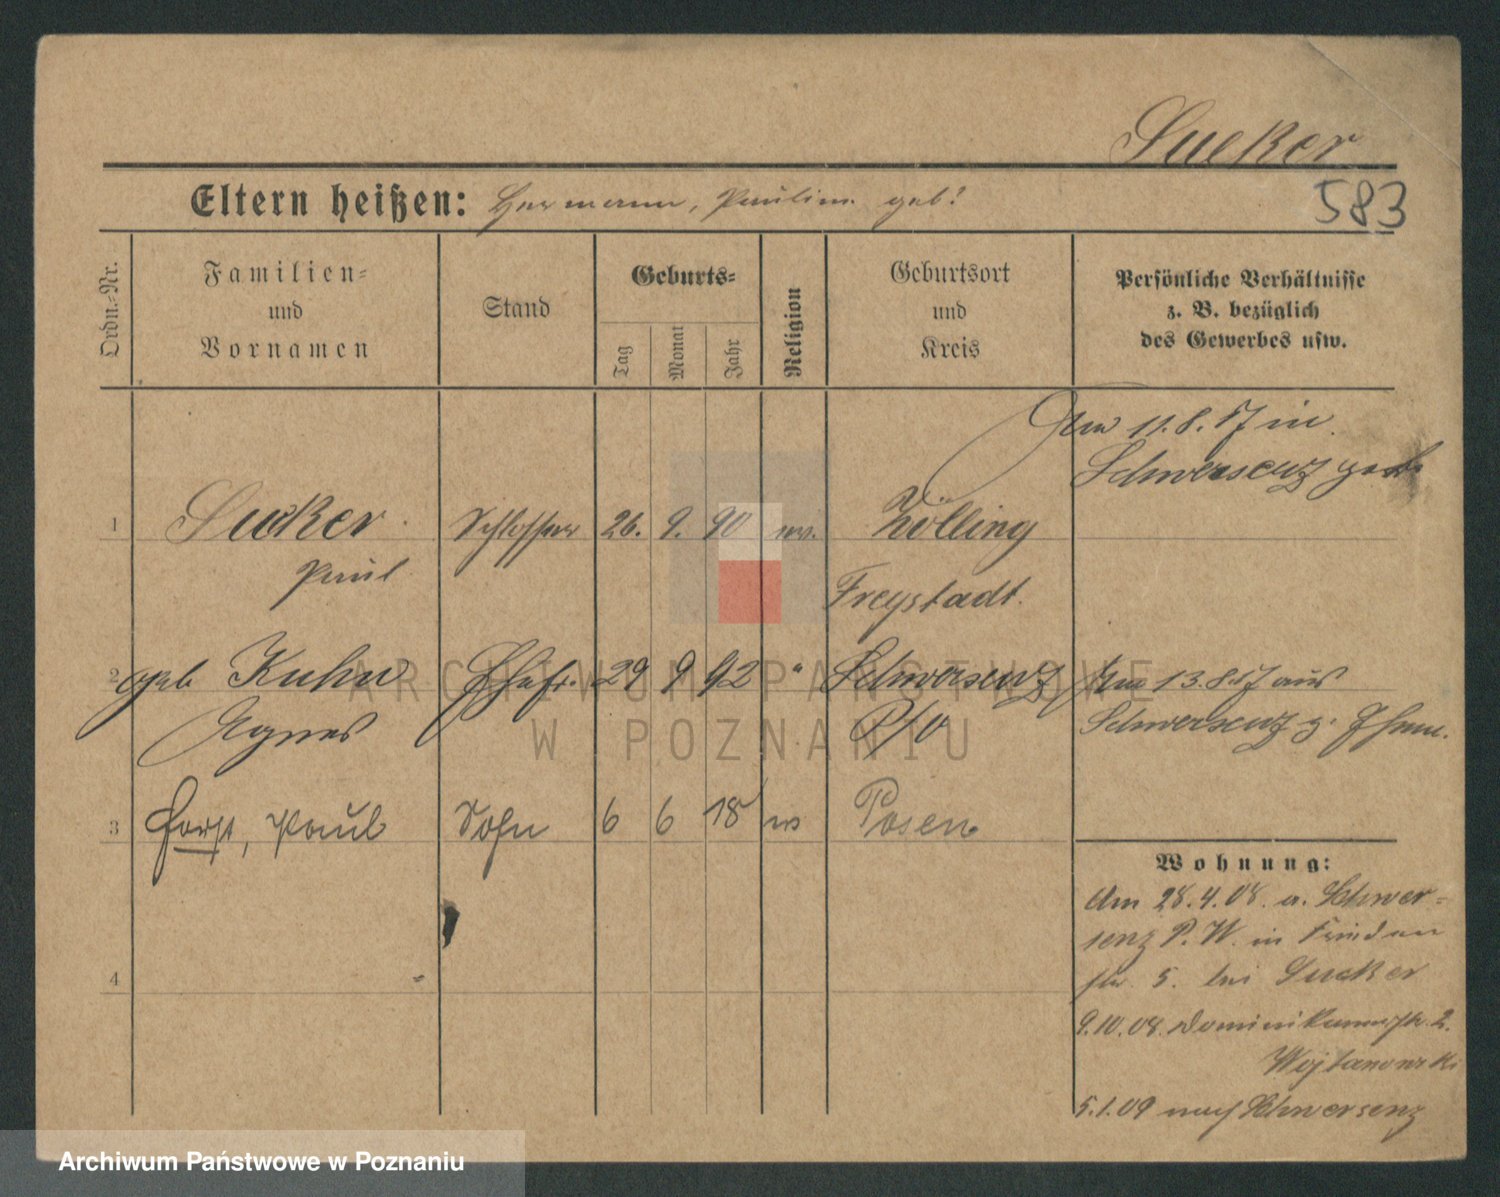 Sucker
Eltern heißen: Hermann, Paulin. geb?
583
Ordn.=Nr.
Familien=
und
Vornamen
Stand
Geburts=
Tag
Monat
Jahr
Religion
Geburtsort
und
Kreis
Persönliche Verhältnisse
z. B. bezüglich
des Gewerbes usw.
Am 11.8.17 in
Schwersenz
1 Sucker Schlosser 26. 9. 90 ev. Zölling
Paul
Freystadt.
2 geb Kuhn Ehefr. 29 9 92 " Schwersenz Am 13.8.17 aus
Agnes P/O Schwersenz z. Ehem.
3 Horst, Paul Sohn 6 6 18 ev Posen
Wohnung:
Am 28.4.08. a. Schwer=
senz P. W. in Frieden
str. 5. bei Sucker
9.10.08. Dominikanerstr. 2.
Wojtanowski
5.1.09 nach Schwersenz
4
ARCHIWUM PAŃSTWOWE
W POZNANIU
Archiwum Państwowe w Poznaniu